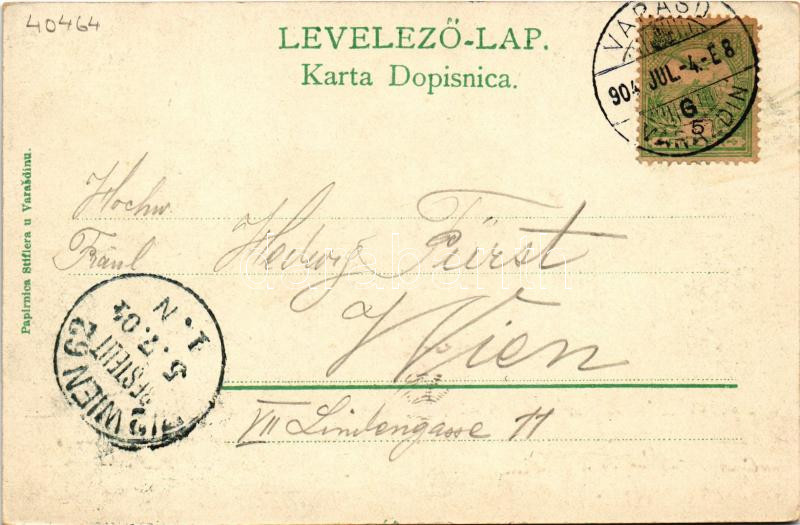 40464
LEVELEZŐ-LAP.
Karta Dopisnica.
VARASD
904 JUL.-4.-E8
G
5
VARAZDIN
Papirnica Stiflera u Varaždinu.
Hochw.
Fräul Hedwig Fürst
Wien
VII Lindengasse 11
WIEN 62
BESTELLT
5.7.04
1.N